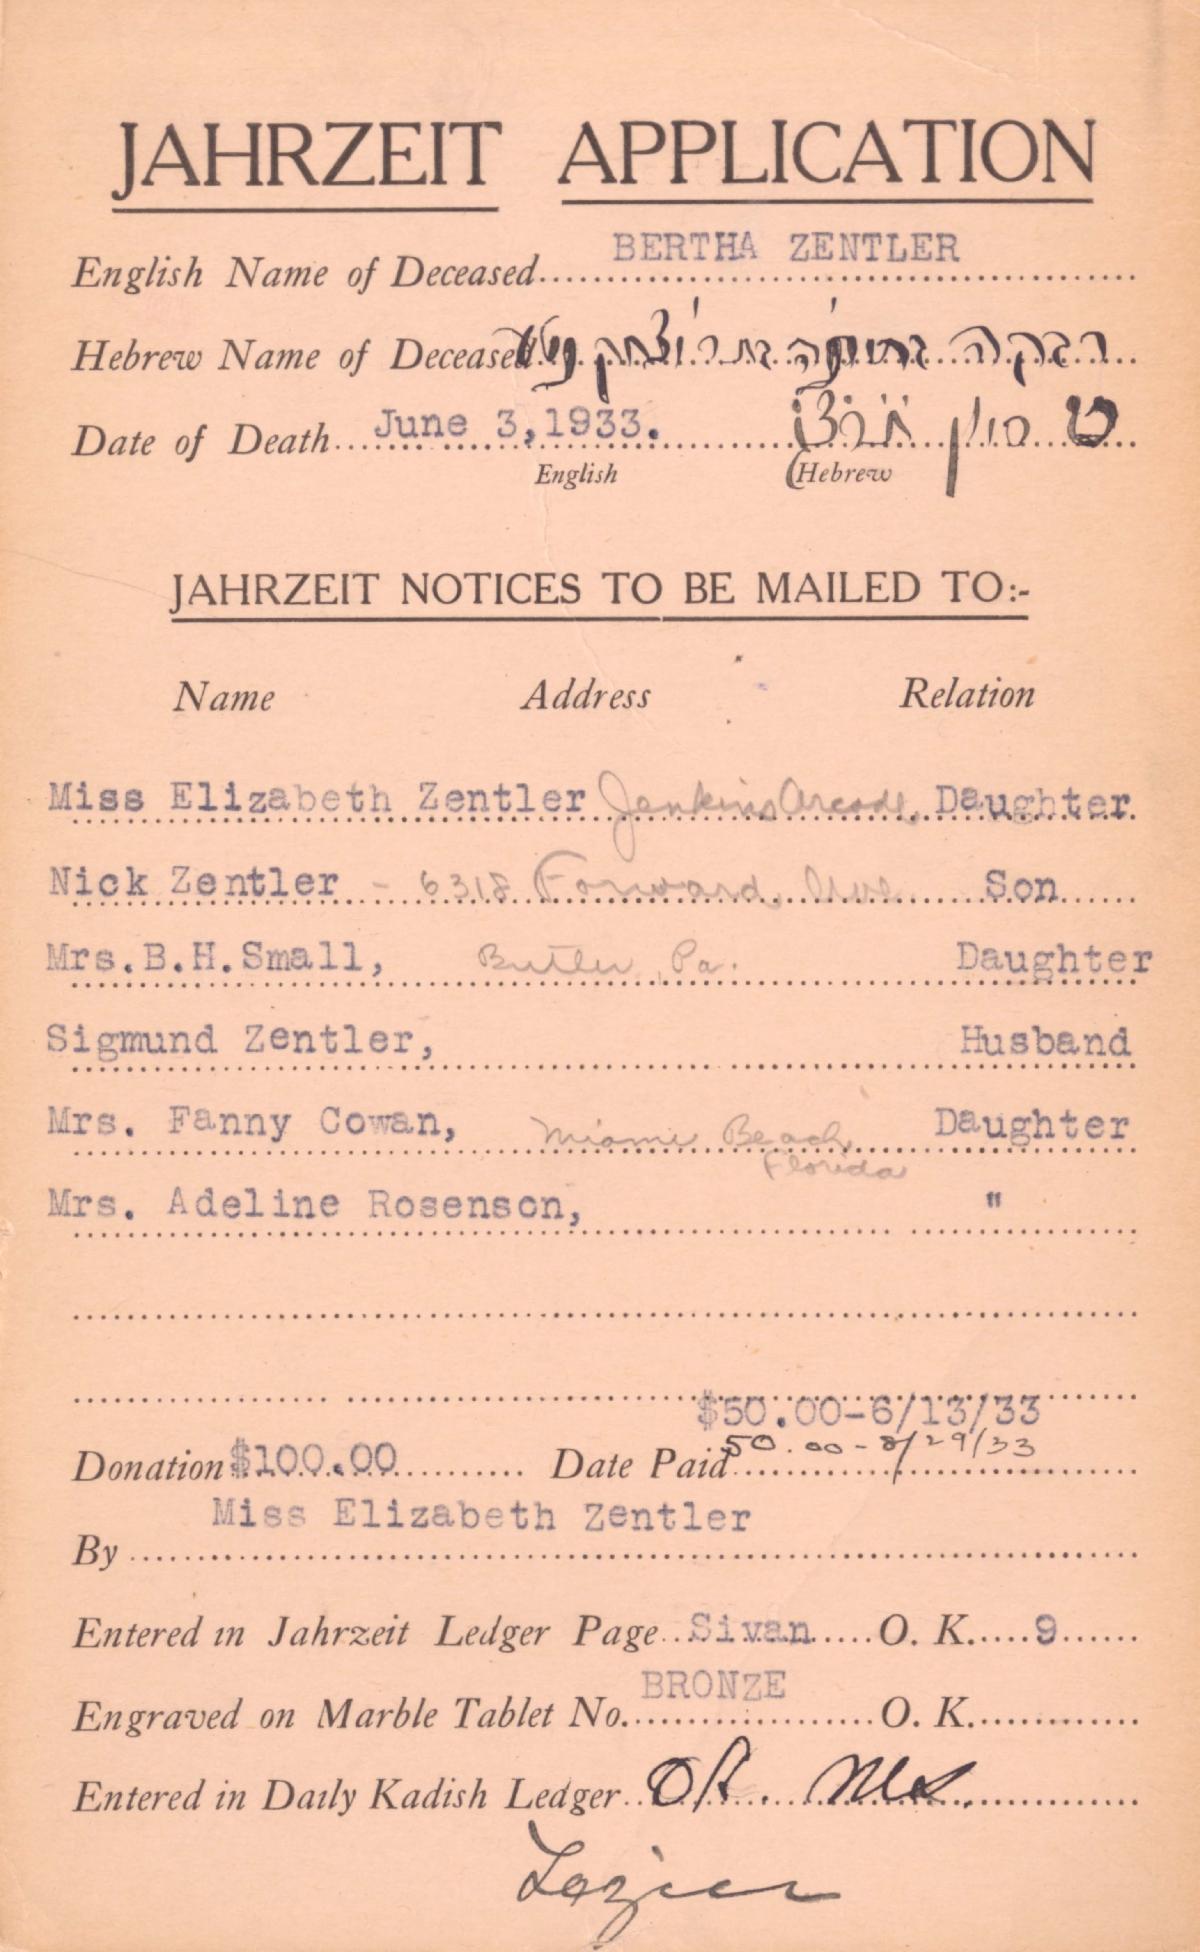 JAHRZEIT APPLICATION
English Name of Deceased BERTHA ZENTLER
Hebrew Name of Deceased רבקה בת ר' יצחק
Date of Death June 3,1933. ט סיון תרצ"ג
English (Hebrew
JAHRZEIT NOTICES TO BE MAILED TO:-
Name Address Relation
Miss Elizabeth Zentler Jenkins Arcade Daughter
Nick Zentler - 6318 Forward Ave Son
Mrs.B.H.Small, Butler Pa. Daughter
Sigmund Zentler, Husband
Mrs. Fanny Cowan, Miami Beach Daughter
Florida
Mrs. Adeline Rosenson, "
$50.00-6/13/33
Donation $100.00 Date Paid 50.00-8/29/33
Miss Elizabeth Zentler
By
Entered in Jahrzeit Ledger Page Sivan O. K. 9
BRONZE
Engraved on Marble Tablet No. O. K.
Entered in Daily Kadish Ledger OK.